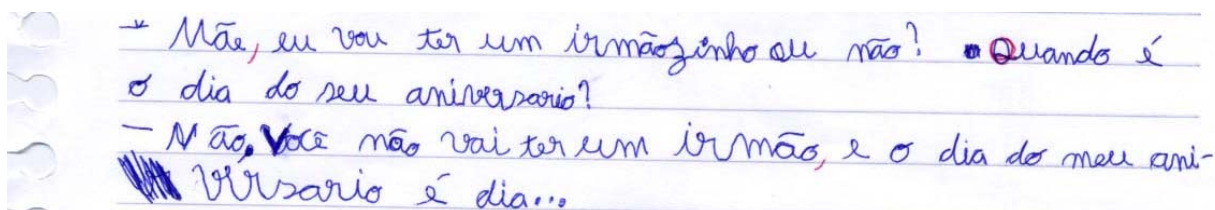 — Mãe, eu vou ter um irmãozinho ou não? Quando é
o dia do seu aniversario?
— Não, Você não vai ter um irmão, e o dia do meu ani-
versario é dia...